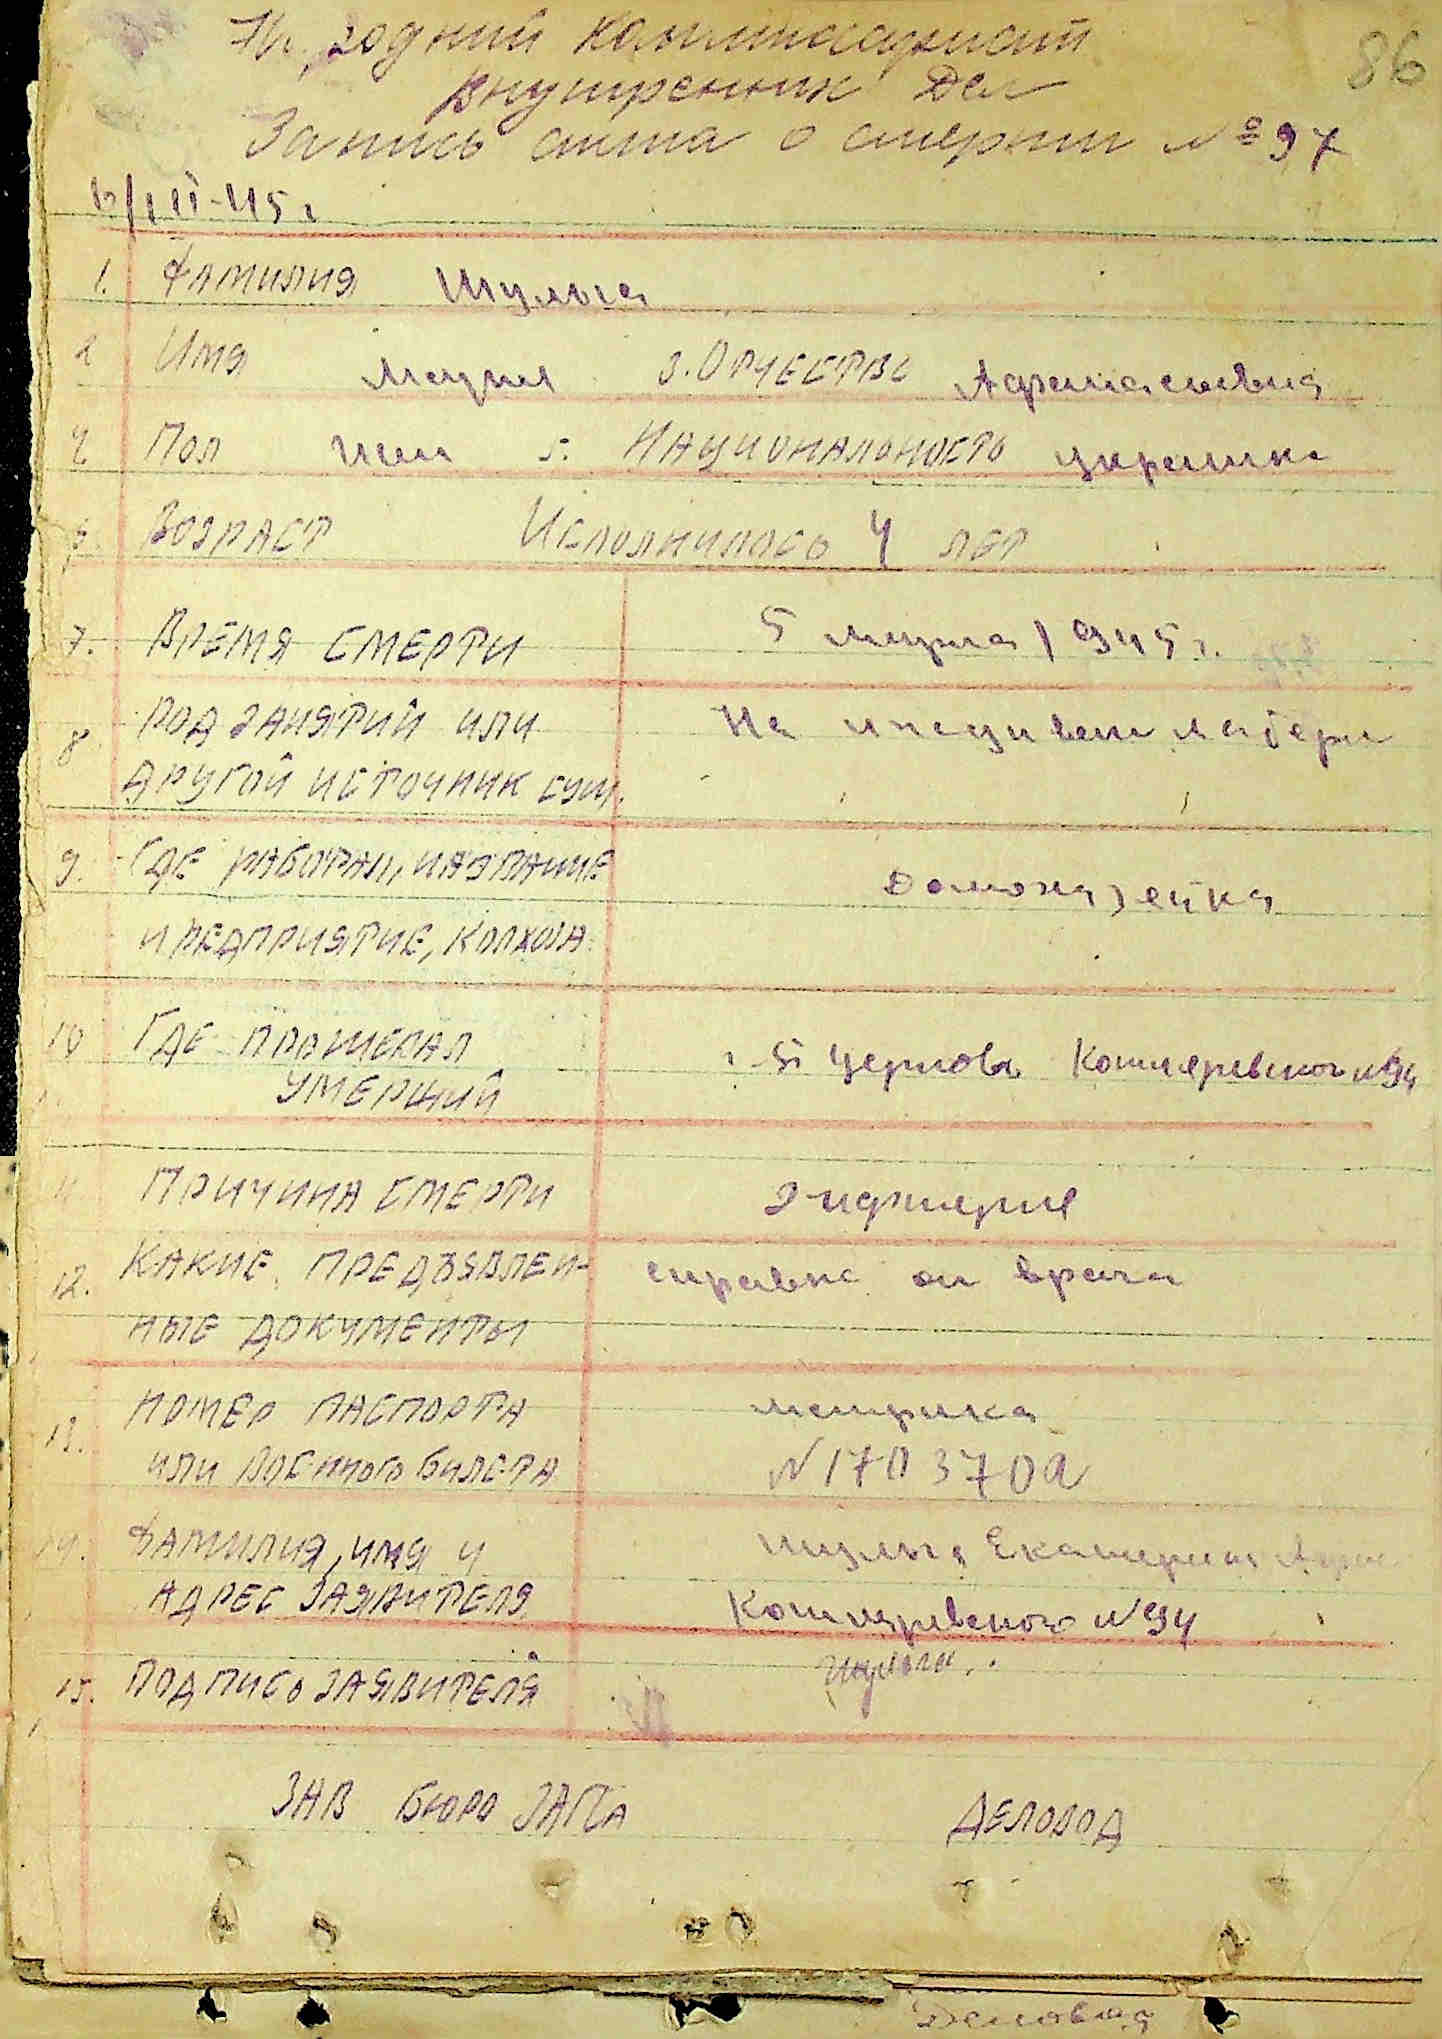 Народний Комиссариат
Внутренних Дел
Запись акта о смерти № 97
86
/III-45 г
1. Фамилия Шульга
2 Имя Мария 3. Отчество Афанасьевна
4 Пол жен 5. Национальность украинка
6. Возраст Исполнилось 4 лет
7. Время смерти 5 марта 1945 г.
8 Род занятий или На иждивен матери
другой источник сущ.
9. Где работал, название Домохазяйка
предприятие, колхоза
10 Где проживал
умерший г. Котляревского № 94
11 Причина смерти
12. Какие предъявлен- справка от врача
ные документы
13. Номер паспорта метрика
или военного билета №
14. Фамилия, имя и Шульга Екатерина
адрес заявителя Котляревского № 94
15. Подпись заявителя Шульга
Зав бюро ЗАГСа Деловод
Деловод